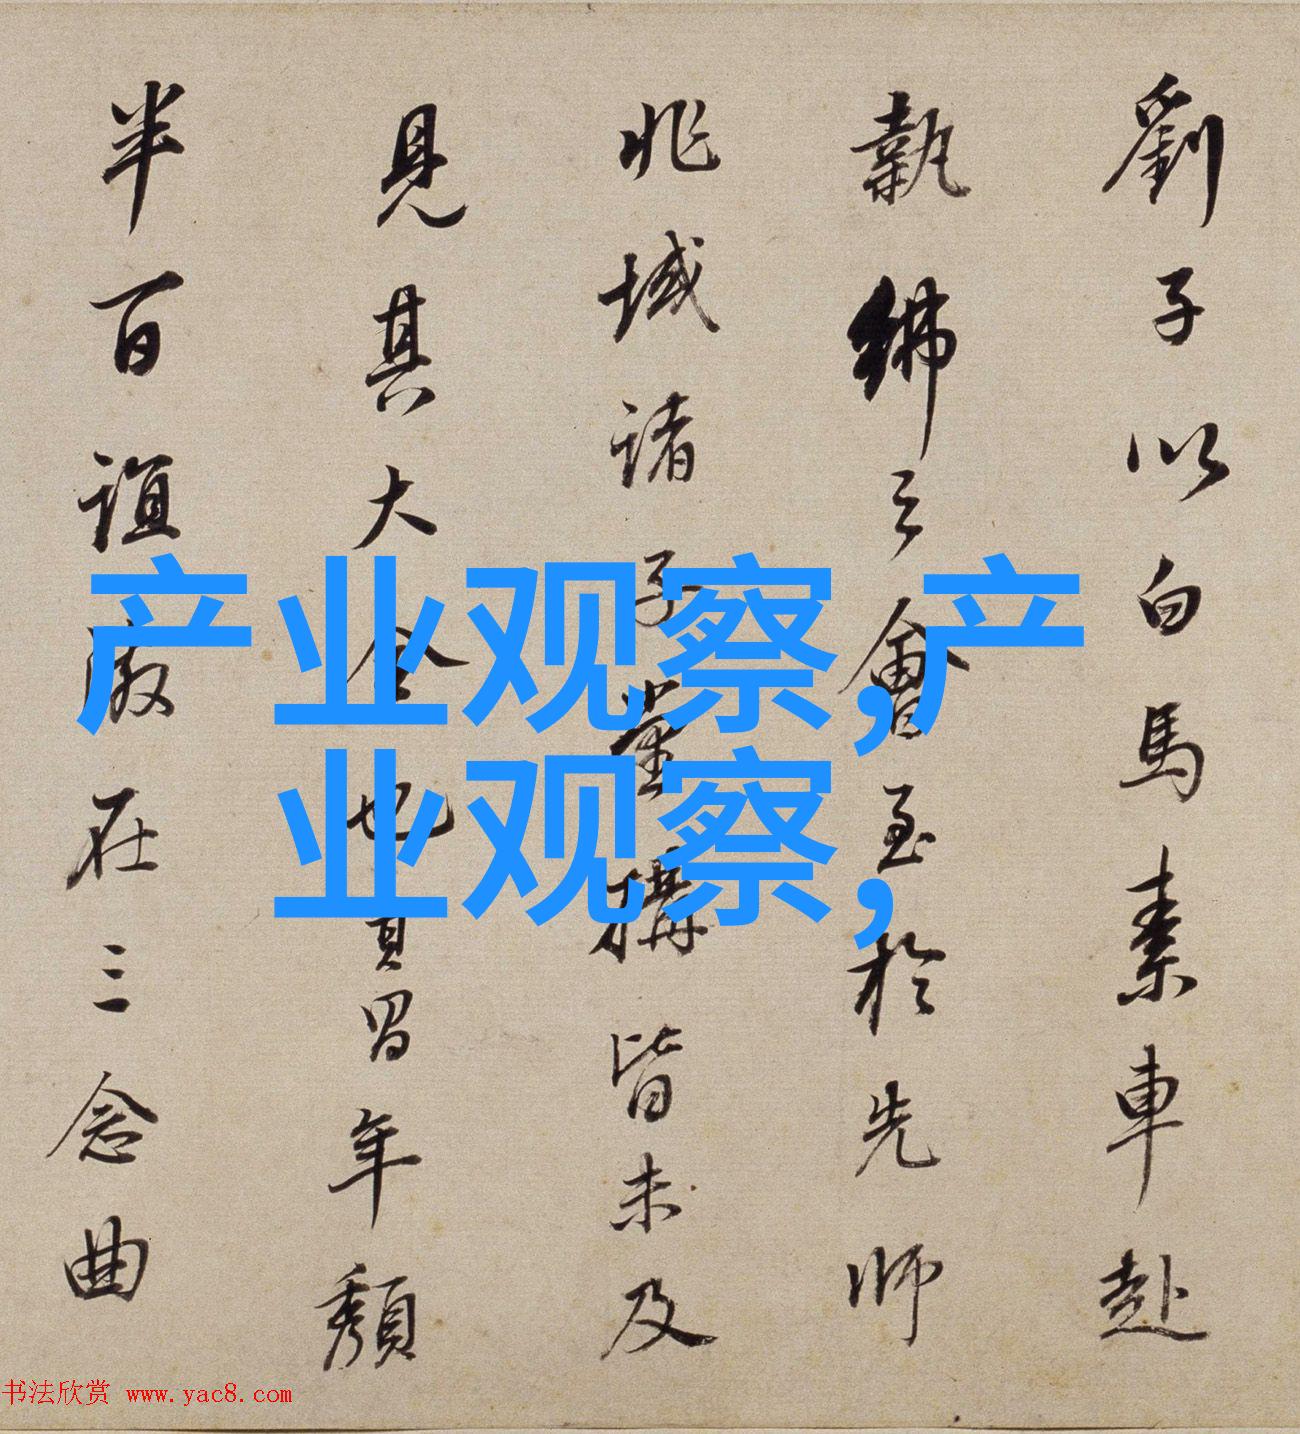 劉子以白馬素車赴
執紼之會至於先師
兆域諸子堂構皆未及
見其大全也年頽
半百誼激在三念曲
产业观察,产
业观察,
书法欣赏 www.yac8.com